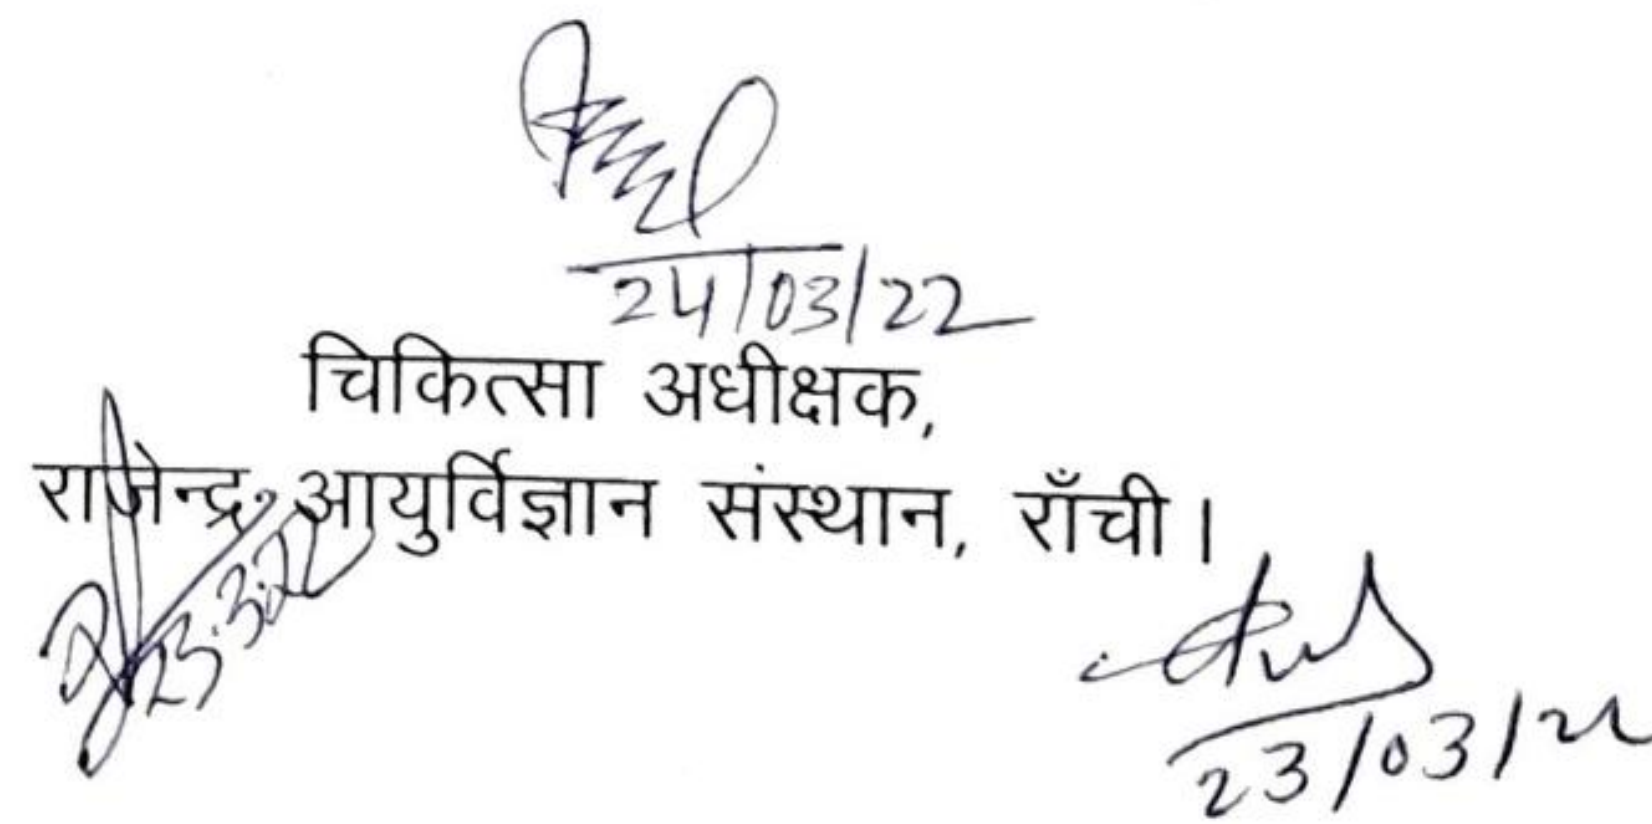 24/03/22
चिकित्सा अधीक्षक,
राजेन्द्र आयुर्विज्ञान संस्थान, राँची।
23.3.22
23/03/22